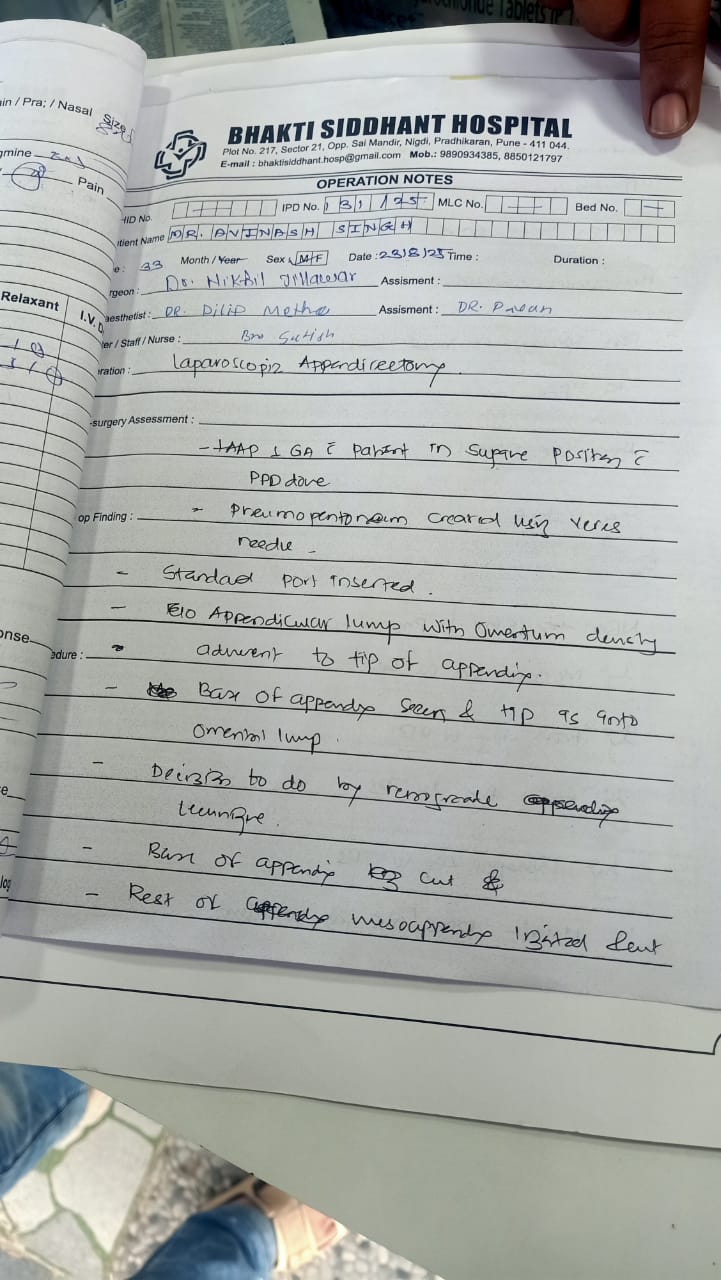 ochloride Tablets IP
in / Pra; / Nasal Size
gmine
Pain
Relaxant
I.V.
onse
BHAKTI SIDDHANT HOSPITAL
Plot No. 217, Sector 21, Opp. Sai Mandir, Nigdi, Pradhikaran, Pune - 411 044.
E-mail : bhaktisiddhant.hosp@gmail.com Mob.: 9890934385, 8850121797
OPERATION NOTES
HID No. IPD No. 131/25 MLC No. Bed No.
tient Name MR. AVINASH SINGH
e: 33 Month / Year Sex M/F Date: 23/8/25 Time : Duration :
rgeon : Dr. Nikhil Assisment :
aesthetist : DR. Dilip Assisment : DR. Pavan
er / Staff / Nurse : Bro Satish
ration : Laparoscopiz Appendicectomy.
-surgery Assessment :
- GA c̄ patient in supine position c̄
PPD done
op Finding : - Pneumoperitoneum created using veres
needle -
- Standad port inserted.
- E/o Appendicular lump with Omentum densly
edure : adherent to tip of appendix.
- Base of appendix seen & tip is into
omental lump.
- Decision to do by retrograde
technique.
- Base of appendix cut &
- Rest of mesoappendix & cut